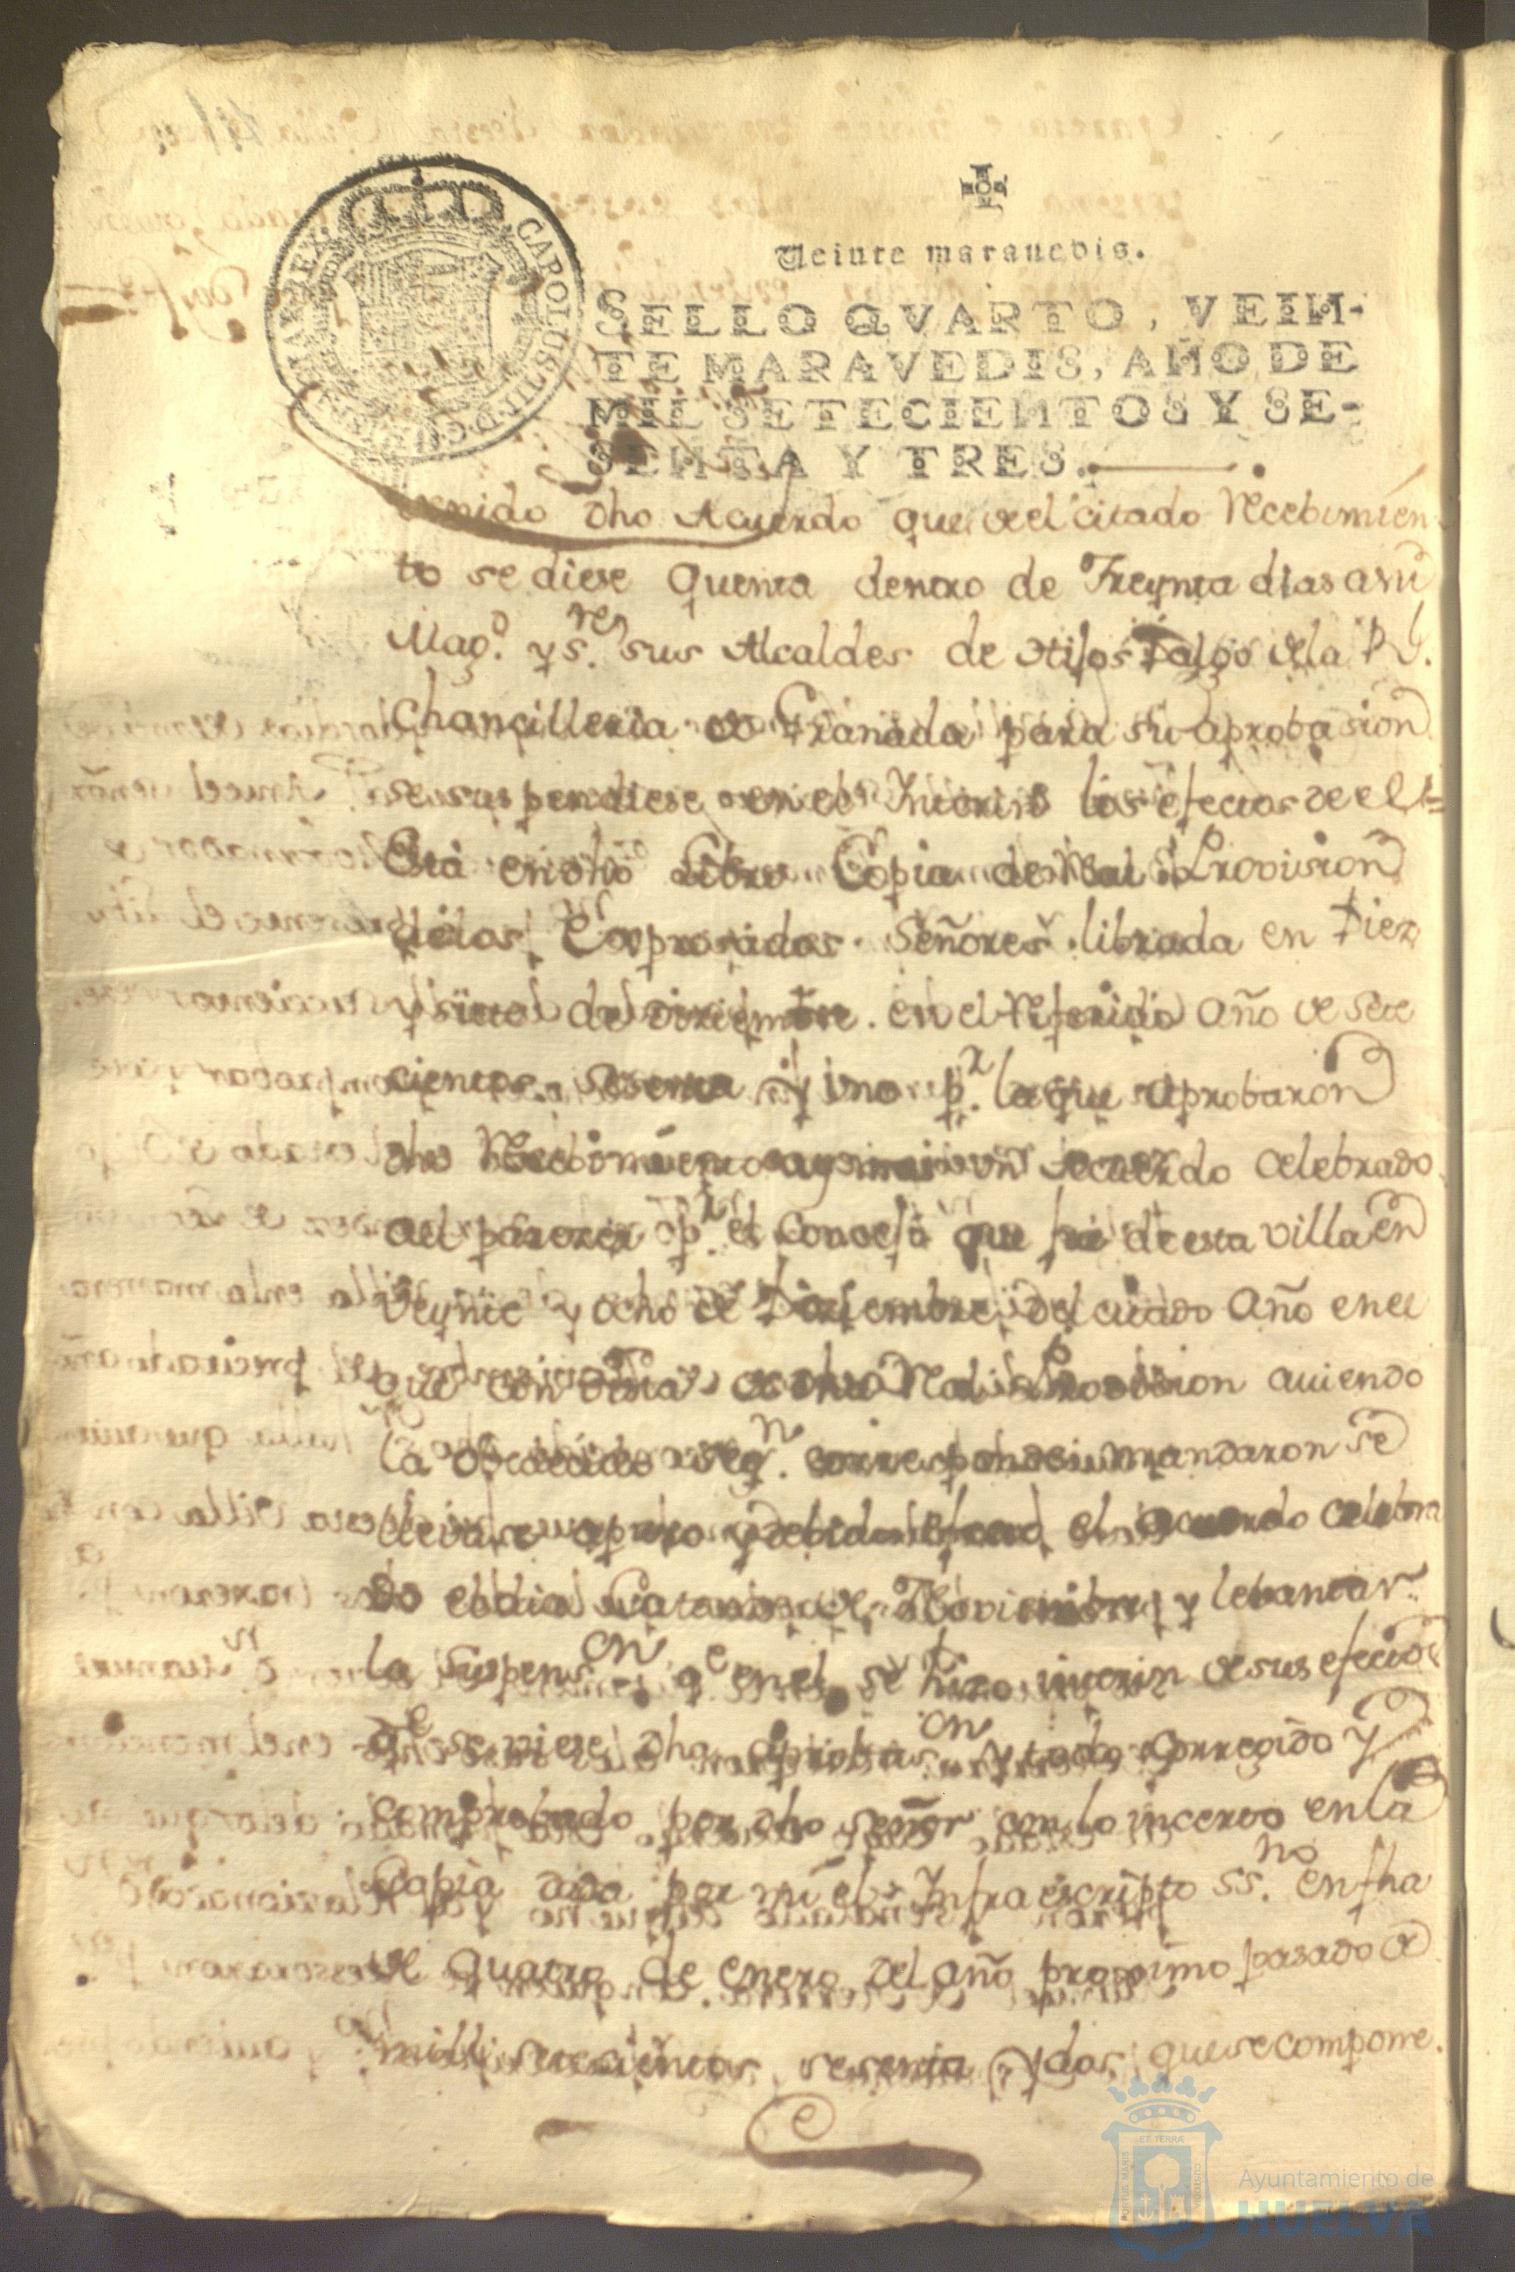 Veinte maravedis.
CAROLUS III D G HISPANIAR REX
SELLO QVARTO, VEIN-
TE MARAVEDIS, AÑO DE
MIL SETECIENTOS Y SE-
SENTA Y TRES.
dho Acuerdo que de el citado Recebimien
to se diese quenta dentro de Treynta dias a su
Mag.d y s.res sus Alcaldes de Hijos Dalgo de la Rl.
Chancilleria de Granada para su aprobasion
se suspendiese en el Interin los efectos de el =
Está en dho Libro Copia de Real Provision
de los Expresados Señores librada en Diez
y siete de Diziembre en el Referido Año de Sete
cientos sesenta y uno p.r la que aprobaron
dho Recebimiento y un Acuerdo celebrado
al parecer p.r el Concejo que fué de esta villa en
Veynte y ocho de Diziembre del citado Año en el
que con vista de dha Real Provision auiendo
la Obedecido seg.n corresponde mandaron se
llevase a puro y debido efecto el Acuerdo celebra
do el dia Catorse de Noviembre y lebantar
la Suspens.on q.e en el se hizo interin de sus efectos
q.e se viese dha aprobas.on y todo Corregido y
comprobado por dho señor con lo incerto en la
Copia dada por mi el Infraescripto ss.no en fha
de quatro de enero del año proximo pasado de
mill setecientos sesenta y dos que se compone.
Ayuntamiento de
HUELVA